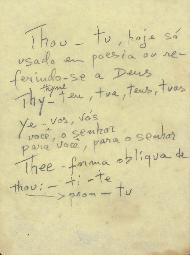 Thou - tu, hoje só
usado em poesia ou re-
ferindo-se a Deus
thyne
Thy - teu, tua, teus, tuas
Ye - vos, vós
você, o senhor
para você, para o senhor
Thee - forma oblíqua de
thou: - ti - te
- tu